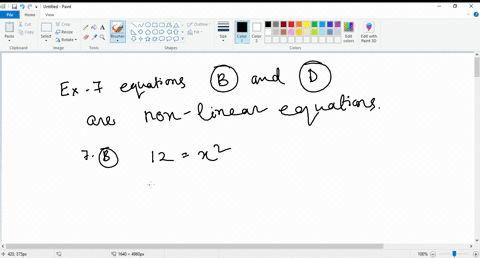 Untitled - Paint
File Home View
Paste
Clipboard
Select
Image
Tools
Brushes
Shapes
Outline
Fill
Size
Color 1
Color 2
Colors
Edit colors
Edit with Paint 3D
Ex. 7 equations B and D
are non-linear equations.
7. B 12 = x²
420, 375px
1640 × 4960px
100%